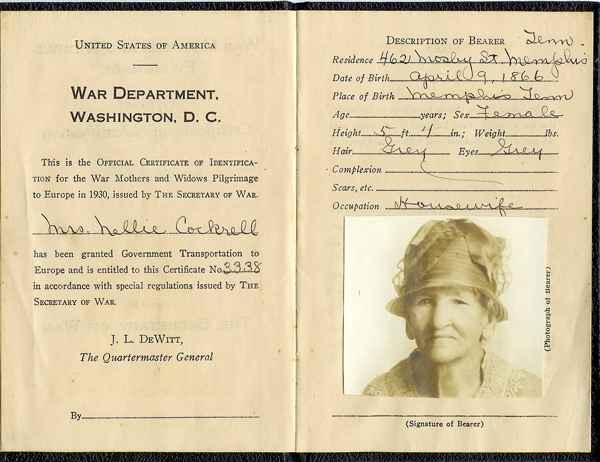 UNITED STATES OF AMERICA
WAR DEPARTMENT,
WASHINGTON, D. C.
This is the OFFICIAL CERTIFICATE OF IDENTIFICA-
TION for the War Mothers and Widows Pilgrimage
to Europe in 1930, issued by THE SECRETARY OF WAR.
Mrs. Nellie Cockrell
has been granted Government Transportation to
Europe and is entitled to this Certificate No. 3338
in accordance with special regulations issued by THE
SECRETARY OF WAR.
J. L. DEWITT,
The Quartermaster General
By
DESCRIPTION OF BEARER Tenn.
Residence 462 Mosby St. Memphis
Date of Birth April 9, 1866
Place of Birth Memphis Tenn
Age years; Sex Female
Height 5 ft. 4 in.; Weight lbs.
Hair Grey Eyes Grey
Complexion
Scars, etc.
Occupation Housewife
(Photograph of Bearer)
(Signature of Bearer)